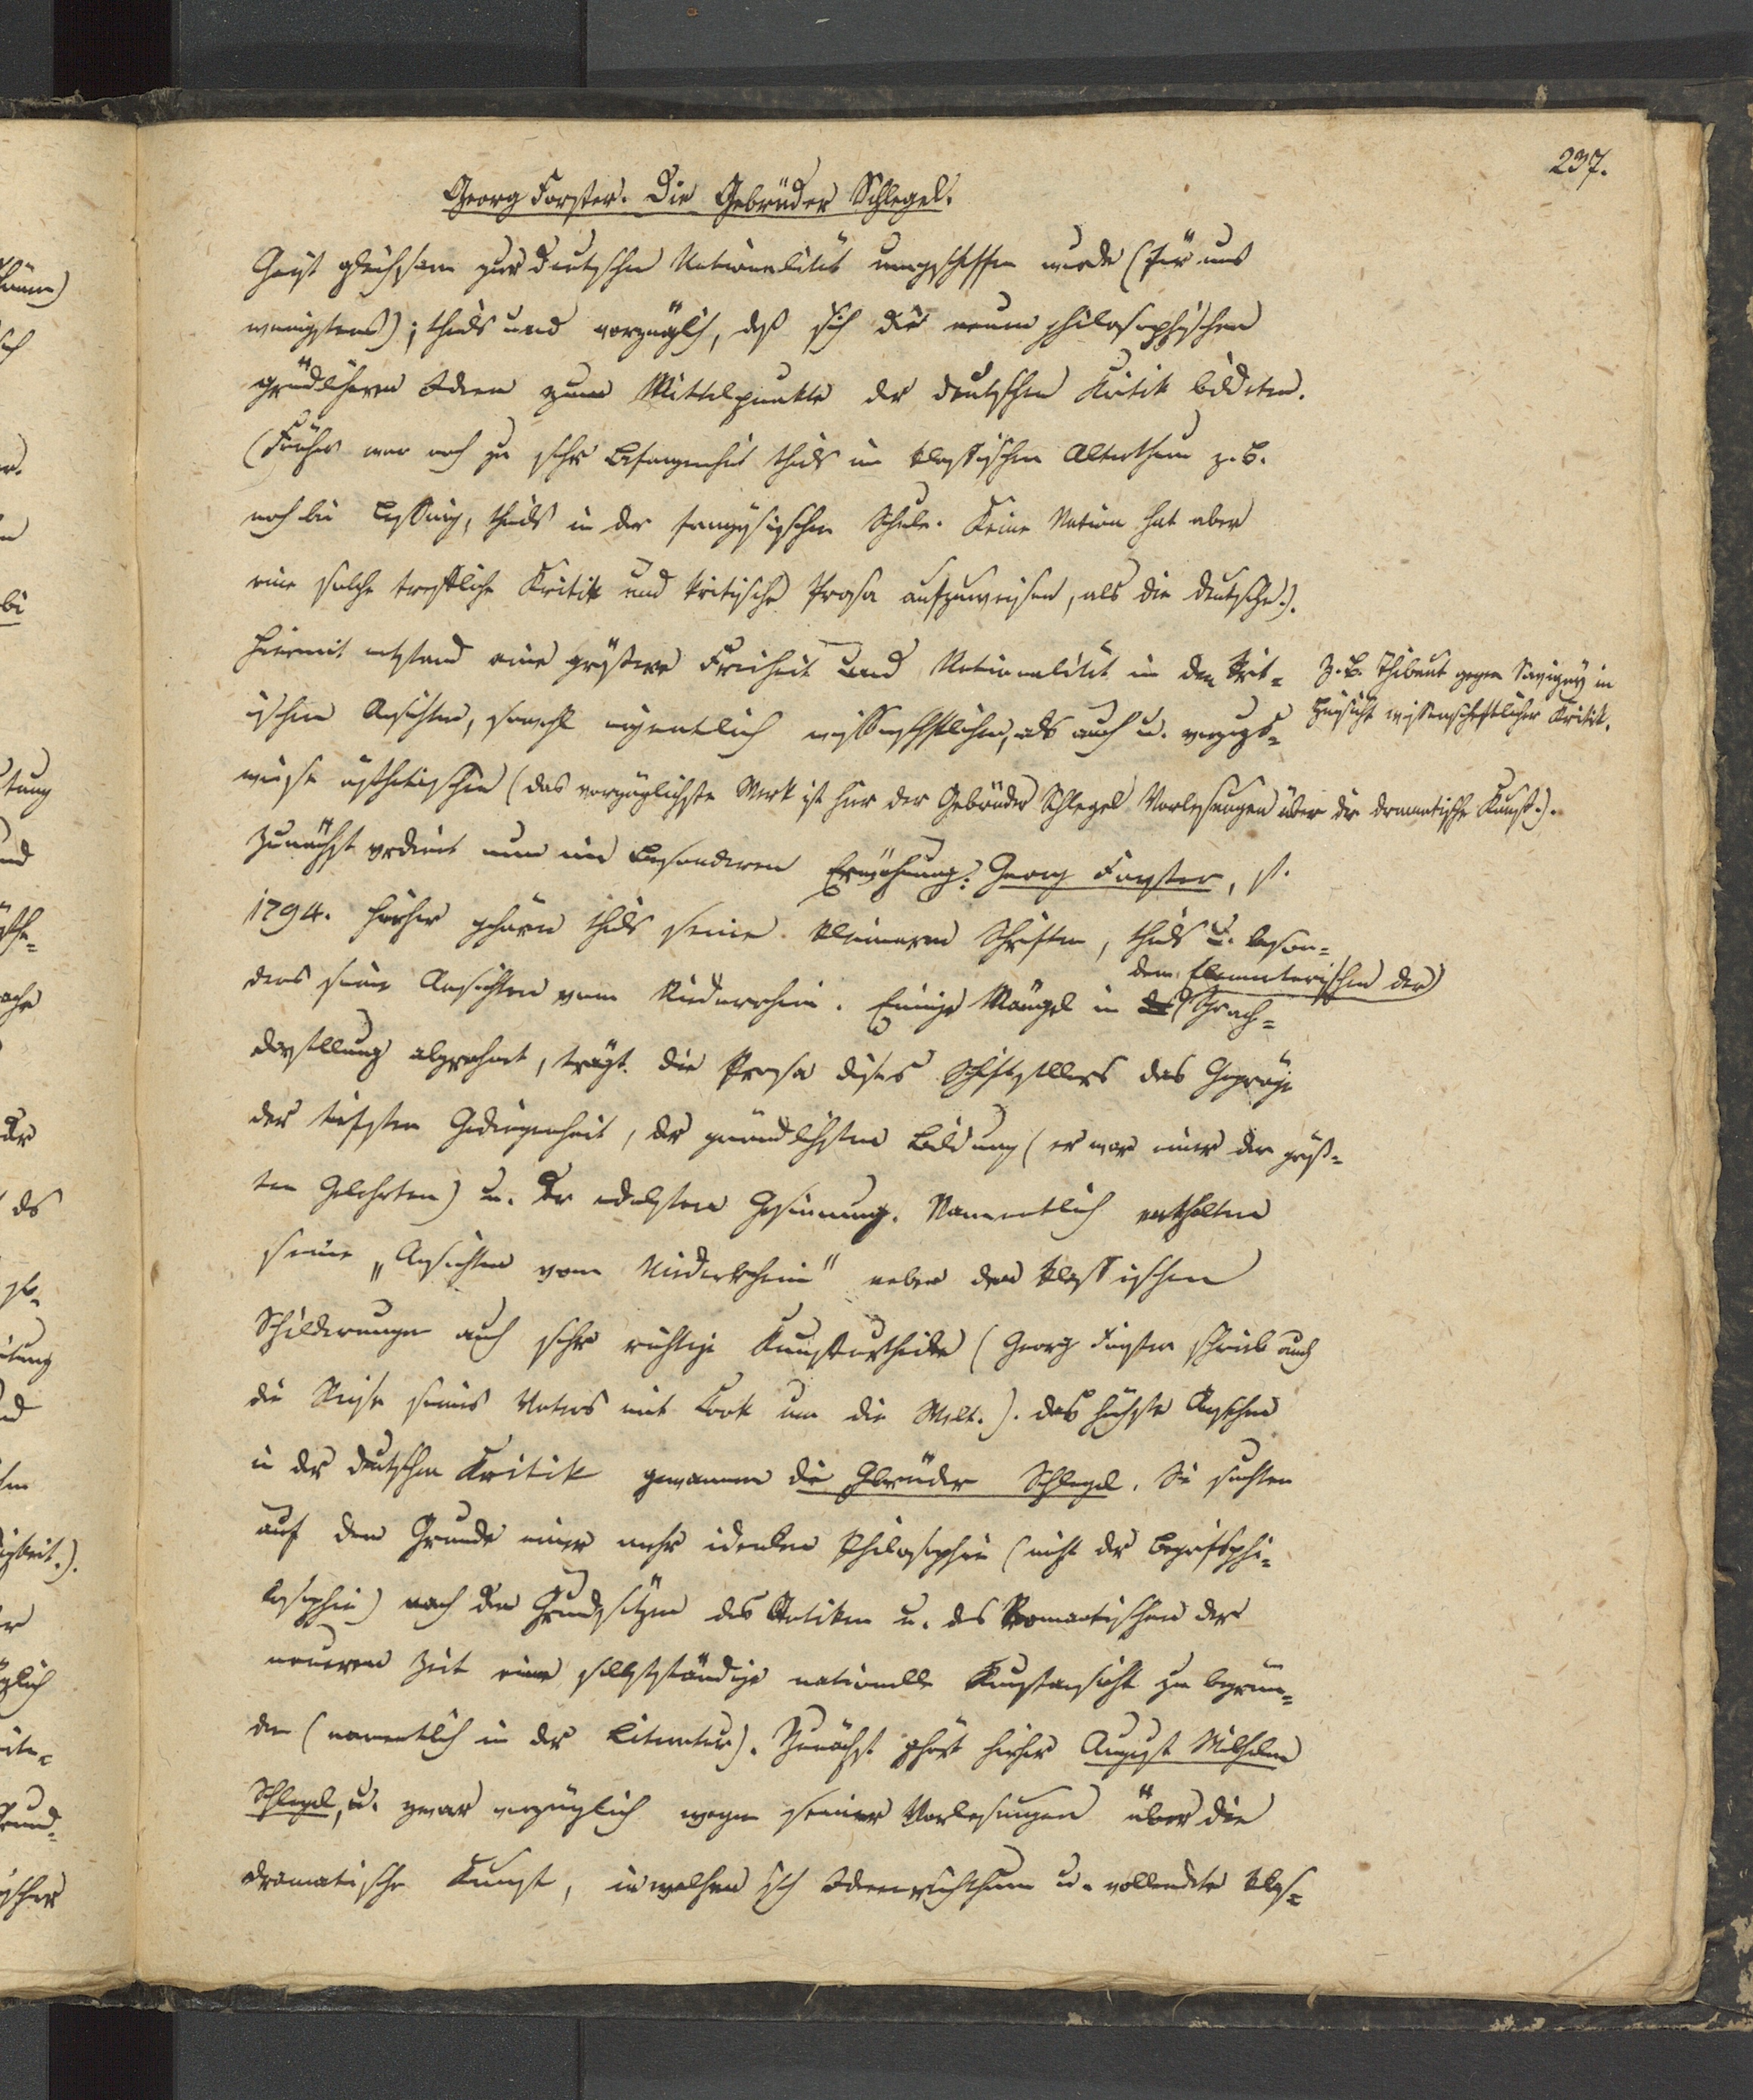 237.
Georg Forster. Die Gebrüder Schlegel.
Geist gleichsam zur deutschen Nationalität umgeschaffen wurde (für uns
wenigstens); theils und vorzüglich, daß sich die neuen philosophischen
gründlichern Ideen zum Mittelpunkte der deutschen Kritik bildeten.
(Früher war noch zu sehr Befangenheit theils im klassischen Alterthum z. B.
noch bei Lessing, theils in der französischen Schule. Keine Nation hat aber
eine solche treffliche Kritik und kritische Prosa aufzuweisen, als die deutsche.).
Hiermit entstand eine größere Freiheit und Nationalität in den krit=
ischen Ansichten, sowohl eigentlich wissenschftlichen, als auch u. vorzugs=
weise ästhetischen (das vorzüglichste Werk ist hier der Gebrüder Schlegel Vorlesungen über die dramatische Kunst.).
z. B. Thibaut gegen Savigny in
Hinsicht wissenschaftlicher Kritik.
Zunächst verdient nun im Besonderen Erwähnung: Georg Forster, st.
1794. Hieher gehören theils seine kleineren Schriften, theils u. beson=
ders seine Ansichten vom Niederrhein. Einige Mängel in der Sprach=
dem Elementarischen der
darstellung abgerechnet, trägt die Prosa dieses Schriftstellers das Gepräge
der tiefsten Gediegenheit, der gründlichsten Bildung (er war einer der größ=
ten Gelehrten) u. der edelsten Gesinnung. Namentlich enthalten
seine „Ansichten vom Niederrhein" neben den klassischen
Schilderungen auch sehr richtige Kunsturtheile (Georg Forster schrieb auch
die Reise seines Vaters mit Cook um die Welt.). Das höchste Ansehen
in der deutschen Kritik gewannen die Gebrüder Schlegel. Sie suchten
auf dem Grunde einer mehr idealen Philosophie (nicht der Begriffsphi=
losophie) nach den Grundsätzen des Antiken u. des Romantischen der
neueren Zeit eine selbstständige nationelle Kunstansicht zu begrün=
den (namentlich in der Literatur). Zunächst gehört hieher August Wilhelm
Schlegel, u. zwar vorzüglich wegen seiner Vorlesungen über die
dramatische Kunst, in welchen sich Ideenreichthum u. vollendete klas=